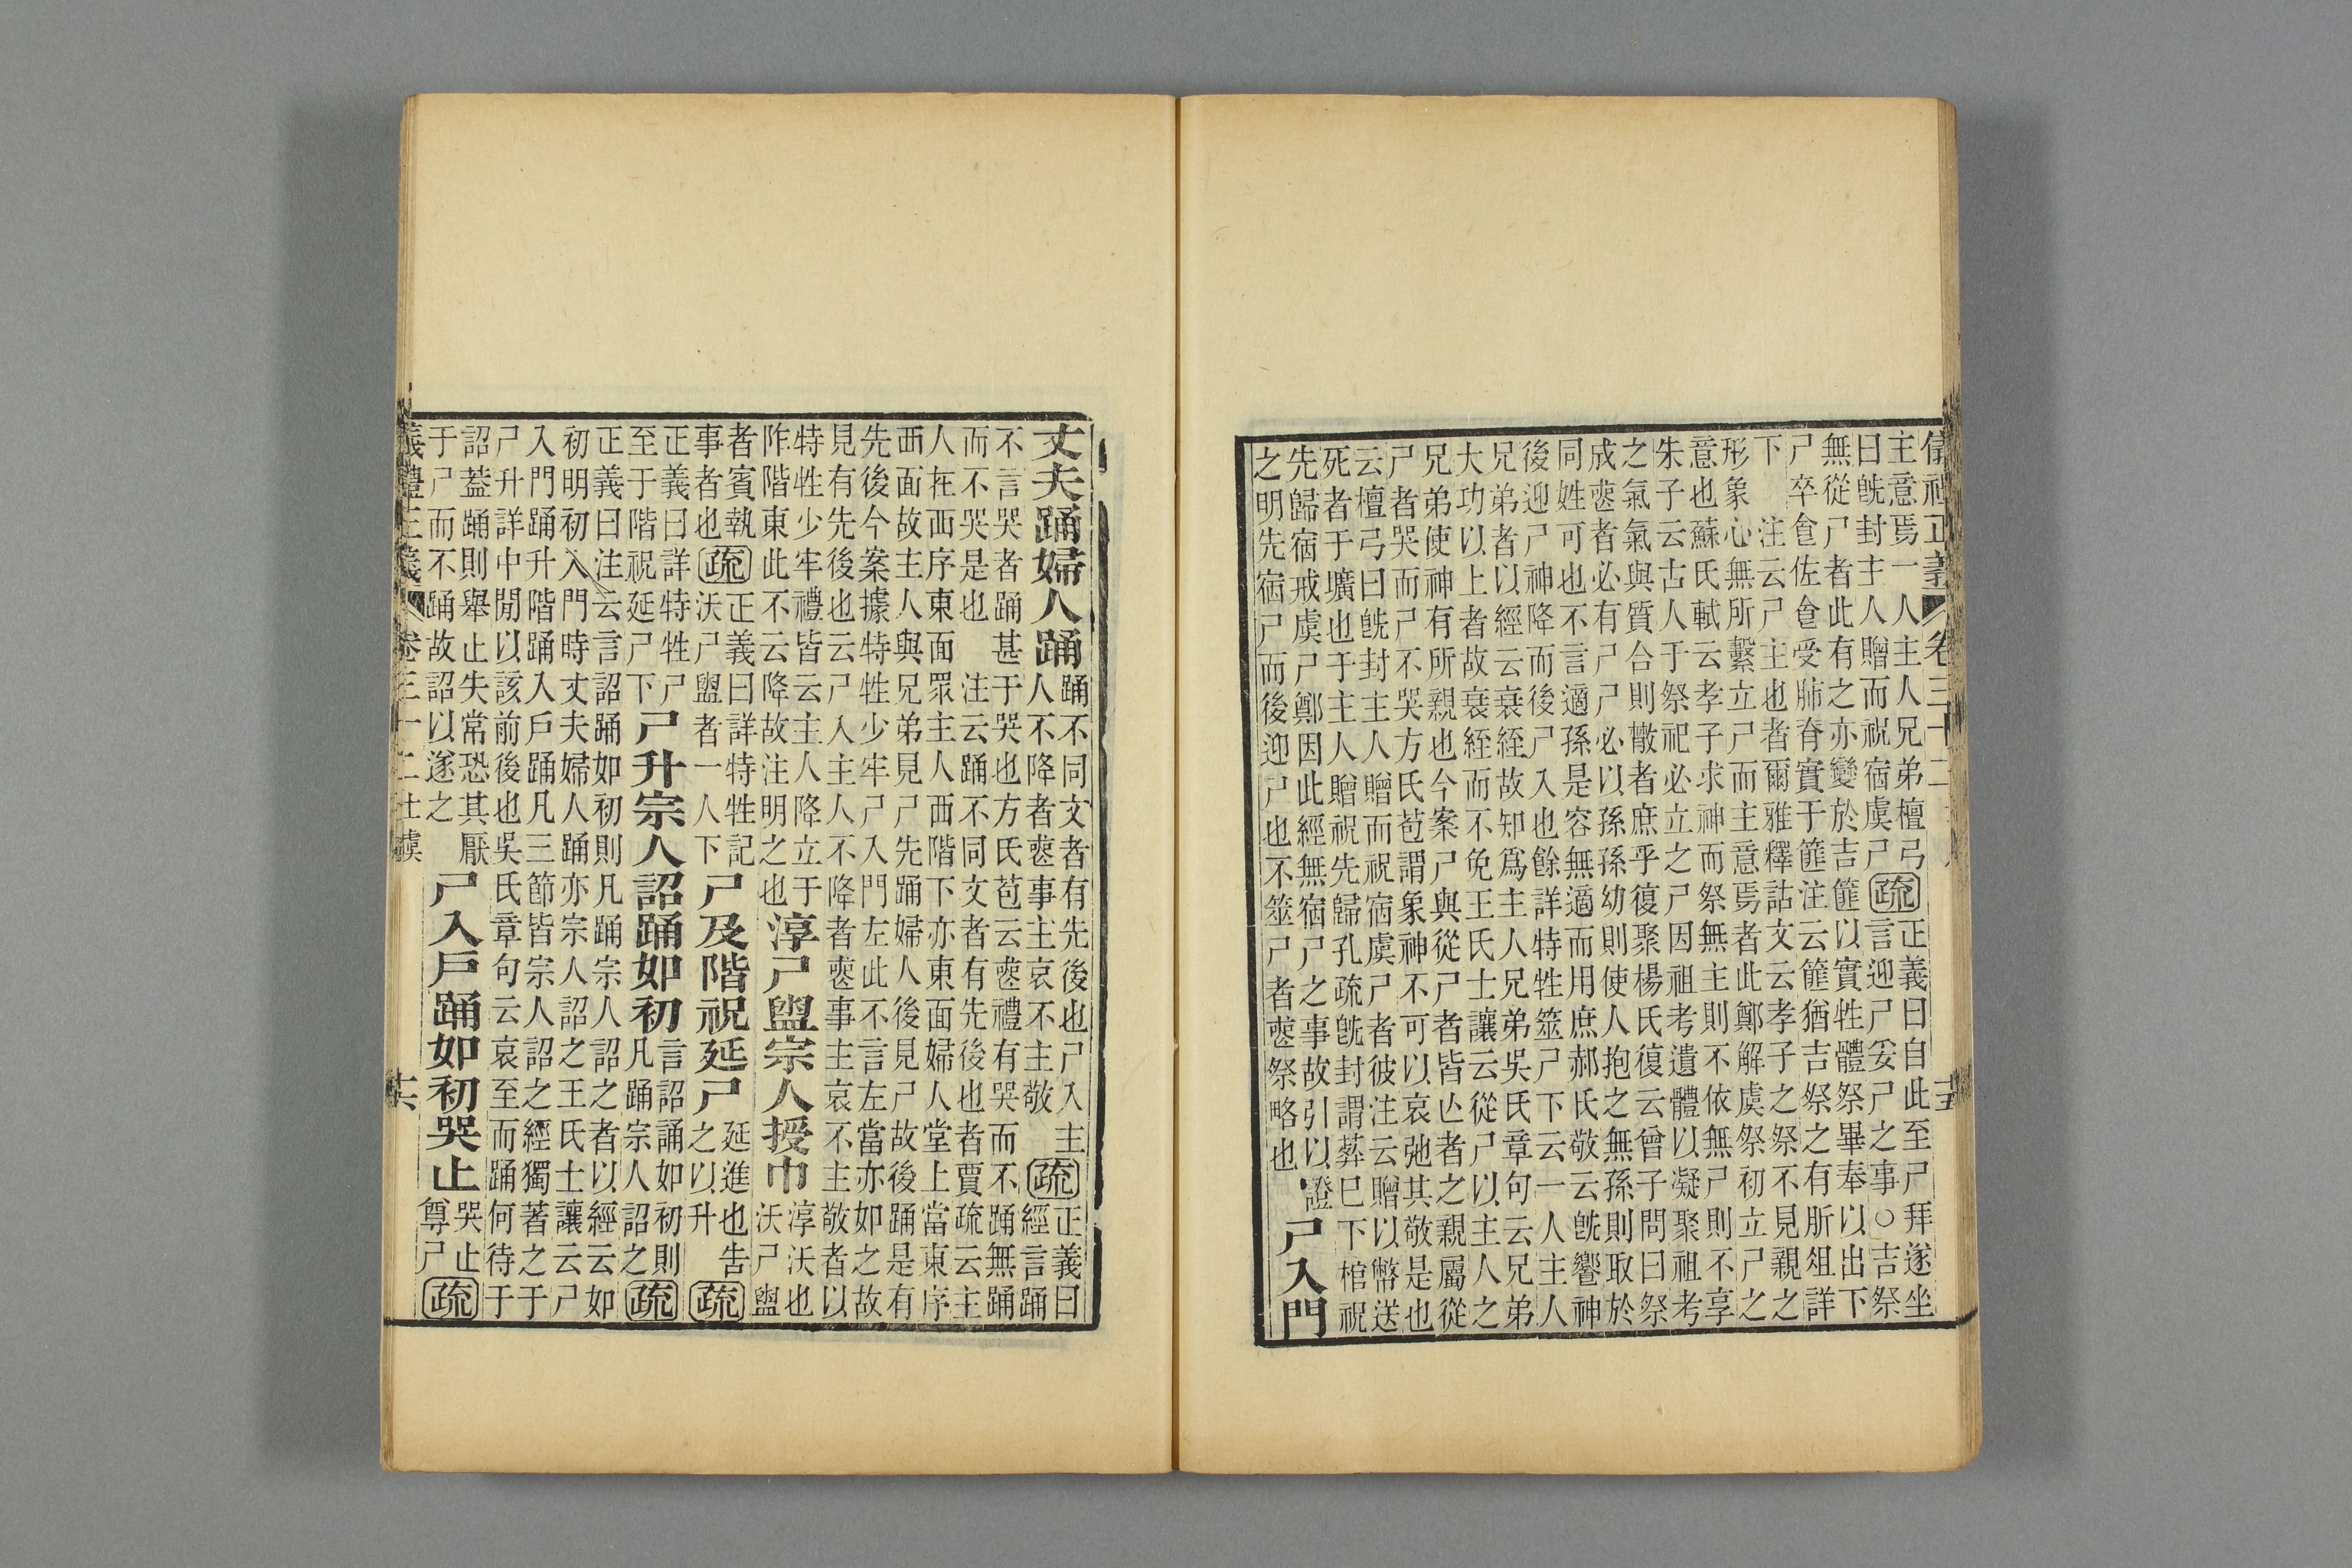 儀禮正義 卷三十二 十五
主意焉一人主人兄弟檀弓
曰旣封主人贈而祝宿虞尸
疏
正義曰自此至尸拜遂坐
言迎尸妥尸之事○吉祭
無從尸者此有之亦變於吉篚以實牲體祭畢奉以出下
尸卒食佐食受肺脊實于篚注云篚猶吉祭之有肵俎詳
下 注云尸主也者爾雅釋詁文云孝子之祭不見親之
形象心無所繫立尸而主意焉者此鄭解虞祭初立尸之
意也蘇氏軾云孝子求神而祭無主則不依無尸則不享
朱子云古人于祭祀必立之尸因祖考遺體以凝聚祖考
之氣氣與質合則散者庶乎復聚楊氏復云曾子問曰祭
成喪者必有尸尸必以孫孫幼則使人抱之無孫則取於
同姓可也不言適孫是容無適而用庶郝氏敬云旣饗神
後迎尸神降而後尸入也餘詳特牲筮尸下云一人主人
兄弟者以經云衰絰故知爲主人兄弟吳氏章句云兄弟
大功以上者故衰絰而不免王氏士讓云從尸以主人之
兄弟使神有所親也今案尸與從尸者皆亾者之親屬從
尸者哭而尸不哭方氏苞謂象神不可以哀弛其敬是也
云檀弓曰旣封主人贈而祝宿虞尸者彼注云贈以幣送
死者于壙也于主人贈祝先歸孔疏旣封謂葬已下棺祝
先歸宿戒虞尸鄭因此經無宿尸之事故引以證
之明先宿尸而後迎尸也不筮尸者喪祭略也
尸入門
丈夫踊婦人踊
踊不同文者有先後也尸入主
人不降者喪事主哀不主敬
疏
正義曰
經言踊
不言哭者踊甚于哭也方氏苞云喪禮有哭而不踊無踊
而不哭是也 注云踊不同文者有先後也者賈疏云主
人在西序東面眾主人西階下亦東面婦人堂上當東序
西面故主人與兄弟見尸先踊婦人後見尸故後踊是有
先後今案據特牲少牢尸入門左此不言左當亦如之故
見有先後也云尸入主人不降者喪事主哀不主敬者以
特牲少牢禮皆云主人降立于
阼階東此不云降故注明之也
淳尸盥宗人授巾
淳沃也
沃尸盥
者賓執
事者也
疏
正義曰詳特牲記
沃尸盥者一人下
尸及階祝延尸
延進也告
之以升
疏
正義曰詳特牲尸
至于階祝延尸下
尸升宗人詔踊如初
言詔誦如初則
凡踊宗人詔之
疏
正義曰注云言詔踊如初則凡踊宗人詔之者以經云如
初明初入門時丈夫婦人踊亦宗人詔之王氏士讓云尸
入門踊升階踊入戶踊凡三節皆宗人詔之經獨著之于
尸升詳中閒以該前後也吳氏章句云哀至而踊何待于
詔蓋踊則舉止失常恐其厭
于尸而不踊故詔以遂之
尸入戶踊如初哭止
哭止
尊尸
疏
儀禮正義 卷三十二士虞 十六